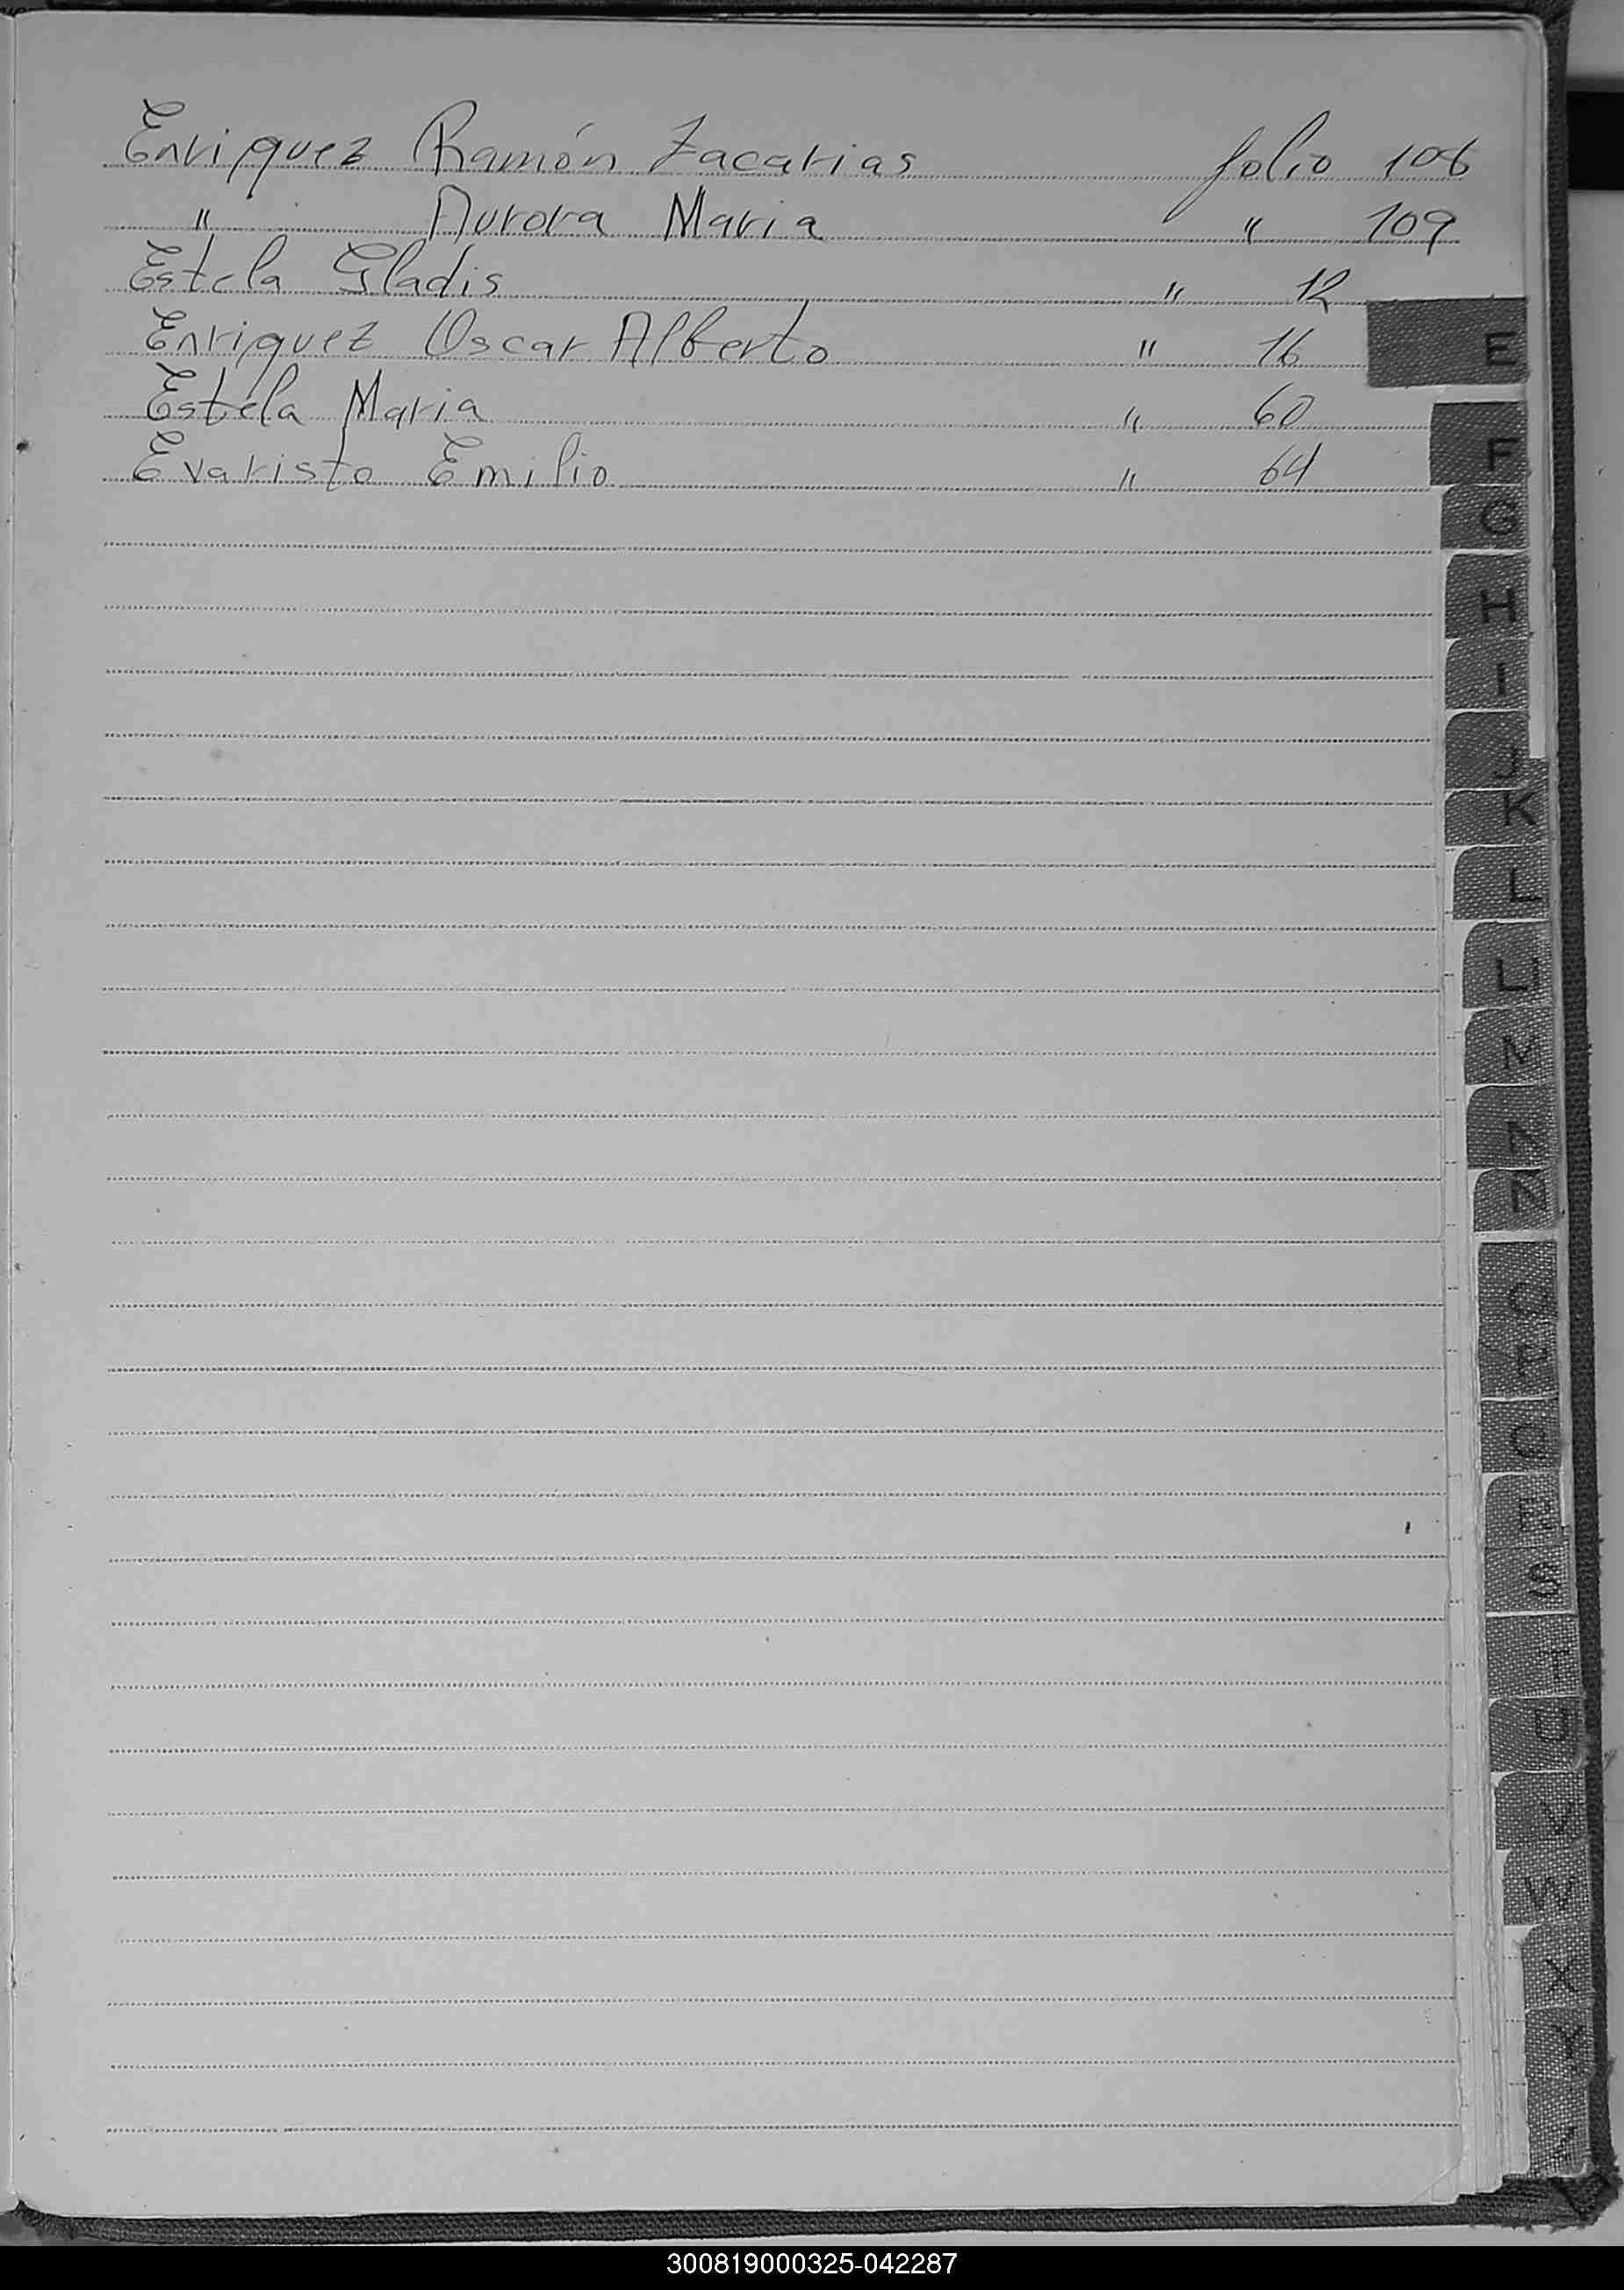 Enriquez Ramón Zacarias folio 106
" Aurora Maria " 109
Estela Gladis " 12
Enriquez Oscar Alberto " 16
Estela Maria " 60
Evaristo Emilio " 64
E
F
G
H
I
J
K
L
L
M
N
Ñ
O
P
Q
R
S
T
U
V
W
X
Y
Z
300819000325-042287